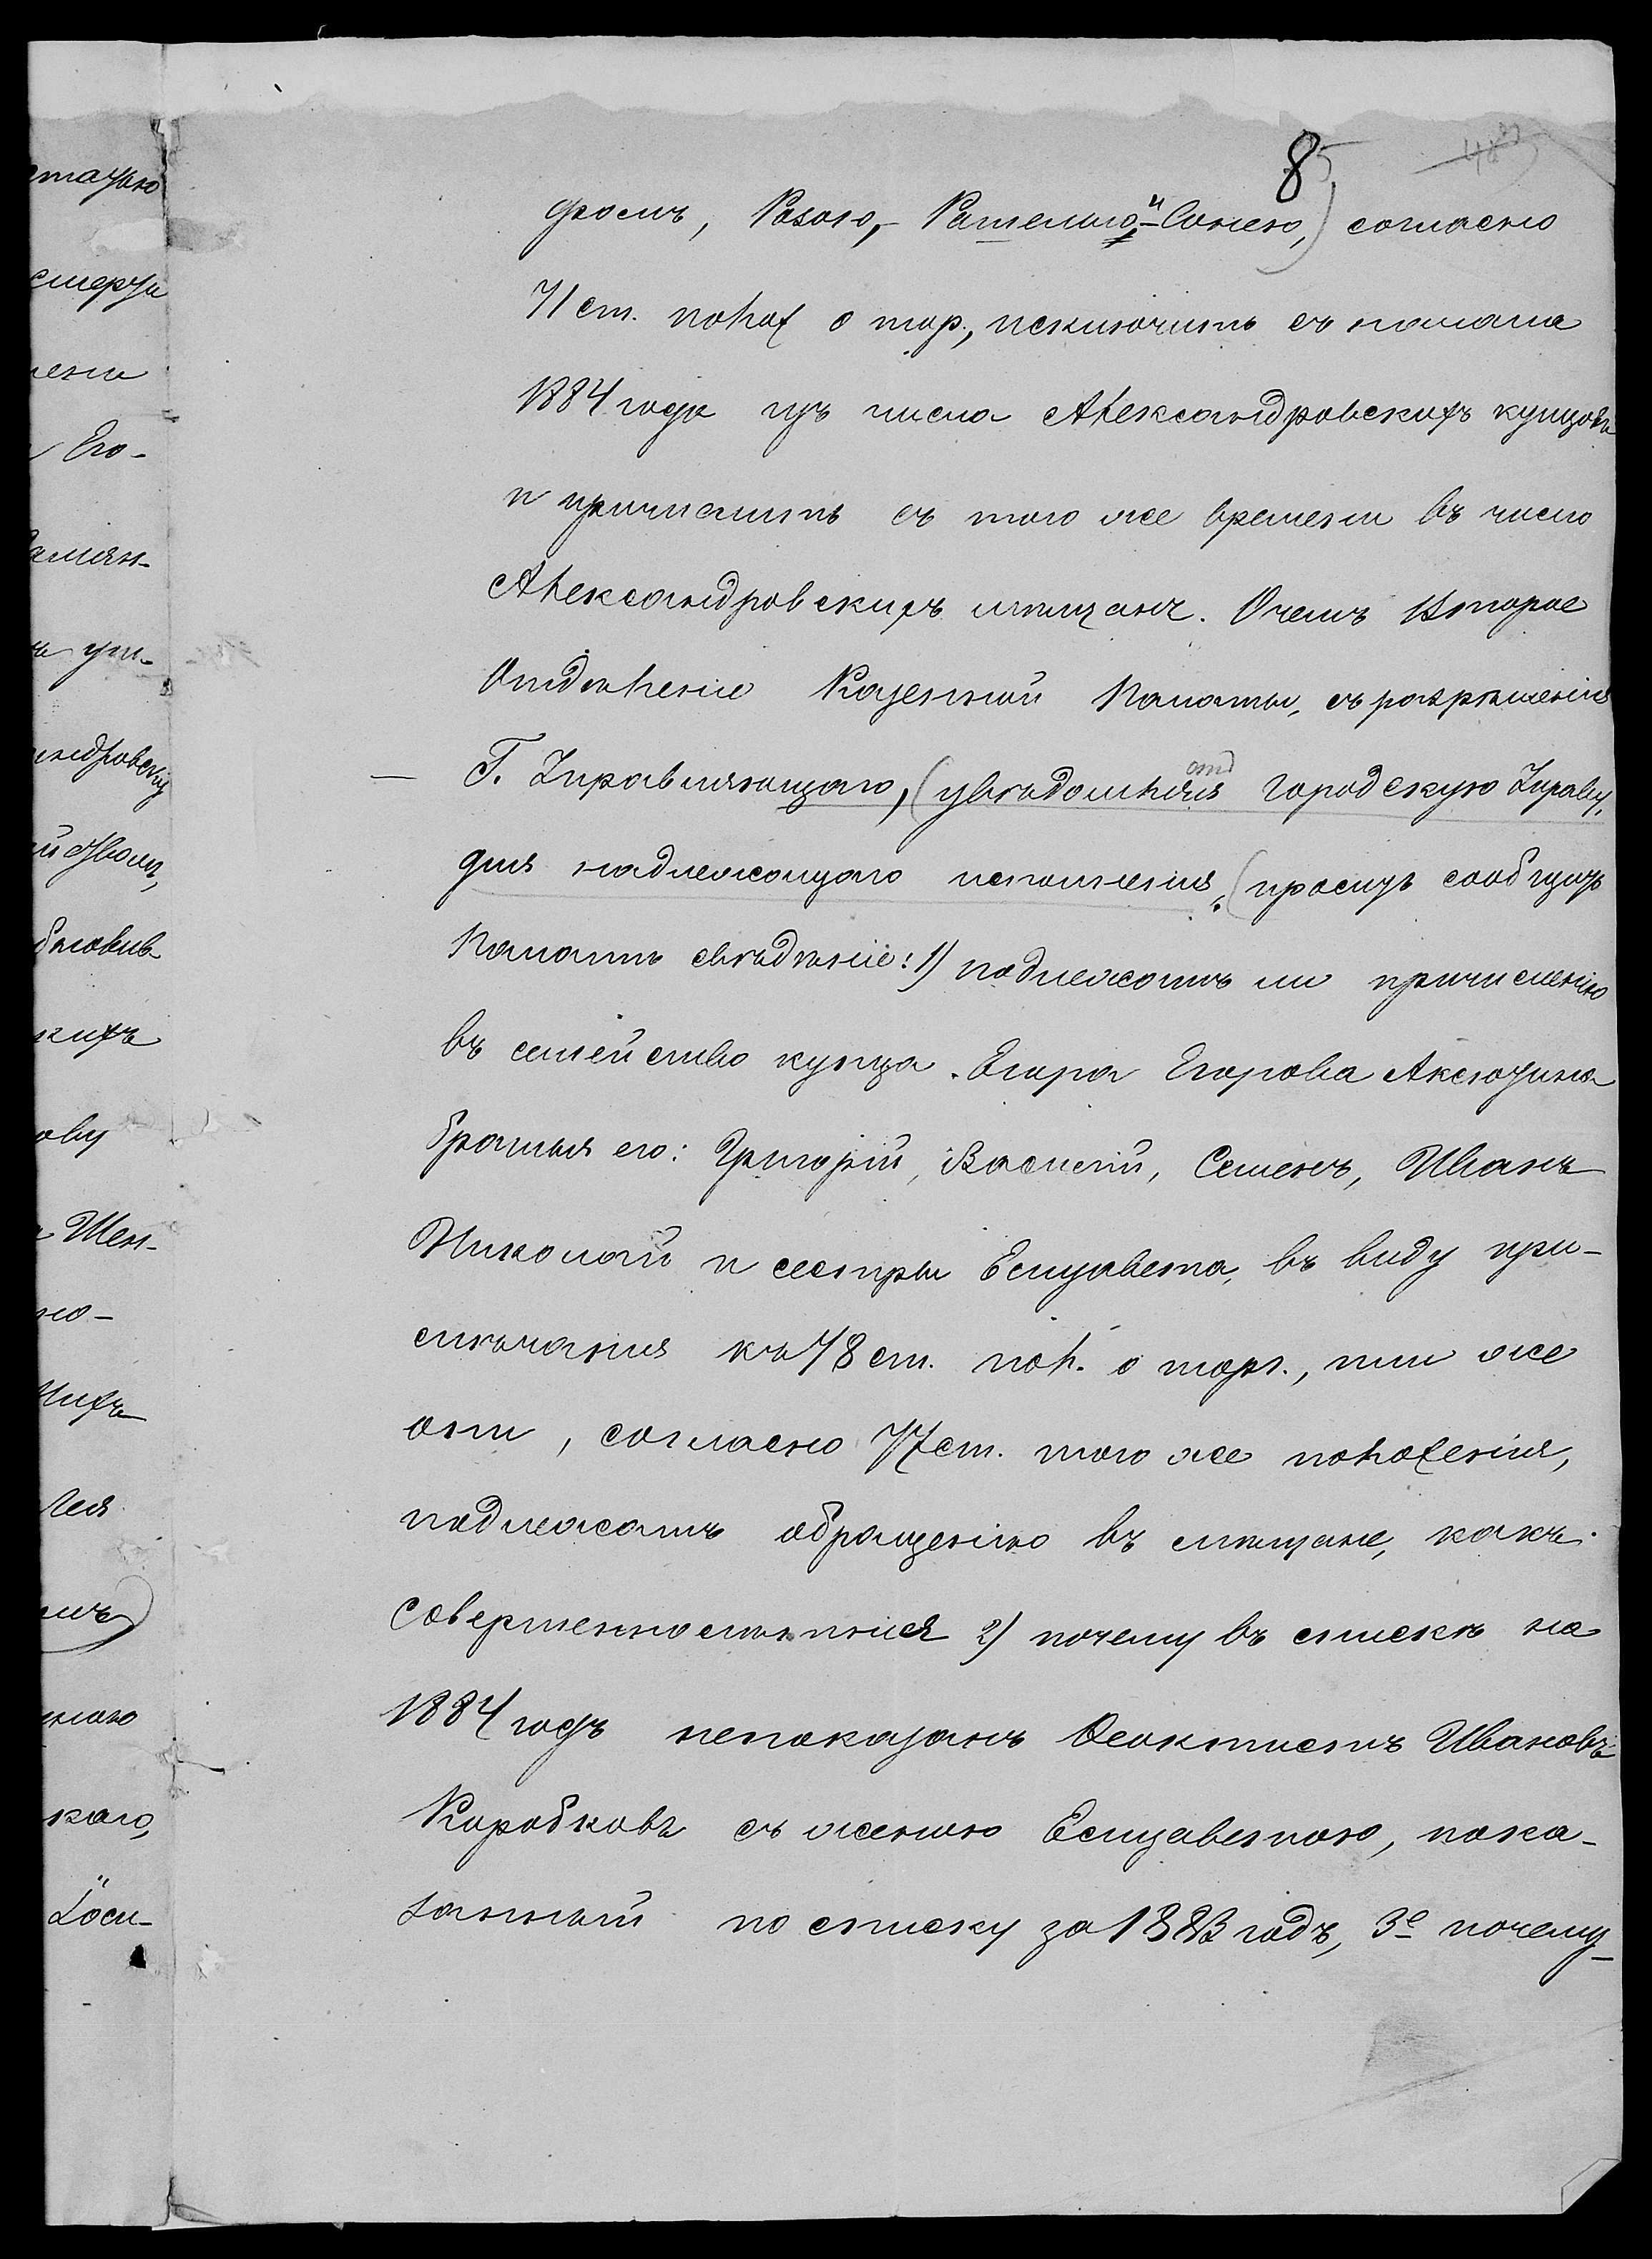 85
фомъ, Розою, Рашелью и Сонею,) согласно
71 ст. полож о тор., исключить съ начала
1884 года изъ числа Александровскихъ купцовъ
и причислить съ того же времени въ число
Александровскихъ мѣщанъ. О чемъ Второе
Отдѣленіе Казенной Палаты, съ разрѣшенія
— Г. Управляющаго, (увѣдомляя Городскую Управу,
для надлежащаго исполненія, (проситъ сообщить
Палатѣ свѣдѣніе: 1) подлежатъ ли причисленію
въ семейство купца Егора Егорова Аксюзина
братья его: Григорій, Василій, Семенъ, Иванъ
Николай и сестры Елизавета, въ виду при-
мѣчанія къ 78 ст. пол. о торг., или же
они, согласно 77 ст. того же положенія,
подлежатъ обращенію въ мѣщане, какъ
совершеннолѣтніе 2) почему въ спискѣ на
1884 годъ непоказанъ Феоктистъ Ивановъ
Коробковъ съ женою Елизаветою, пока-
занный по списку за 1883 годъ, 3е почему
стазью
смерти
Его-
ут-
кихъ
ову
но-
каго,